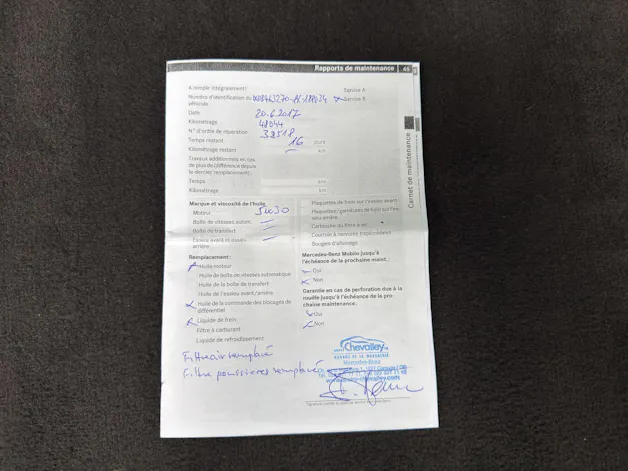 Rapports de maintenance 45
A remplir intégralement:
Service A
Numéro d'identification du véhicule
Service B
Date 20.6.2017
Kilométrage 48044
N° d'ordre de réparation 38518
Temps restant 16 jours
Kilométrage restant — km
Travaux additionnels en cas
de plus de différence depuis
le dernier remplacement:
Temps
Kilométrage km
Carnet de maintenance
Marque et viscosité de l'huile
Moteur 5W30
Boîte de vitesses autom.
Boîte de transfert
Essieu avant et essieu arrière
Remplacement:
Huile moteur
Huile de boîte de vitesses automatique
Huile de la boîte de transfert
Huile de l'essieu avant/arrière
Huile de la commande des blocages de
différentiel
Liquide de frein
Filtre à carburant
Liquide de refroidissement
Plaquettes de frein sur l'essieu avant
Plaquettes/garnitures de frein sur l'es-
sieu arrière
Cartouche du filtre à air
Courroie à nervures trapézoïdales
Bougies d'allumage
Mercedes-Benz Mobilo jusqu'à
l'échéance de la prochaine maint.:
Oui
Non
Garantie en cas de perforation due à la
rouille jusqu'à l'échéance de la pro-
chaine maintenance.
Oui
Non
Filtre air remplacé
Filtre poussières remplacé
Chevalley
GARAGE DE LA
Mercedes-Benz